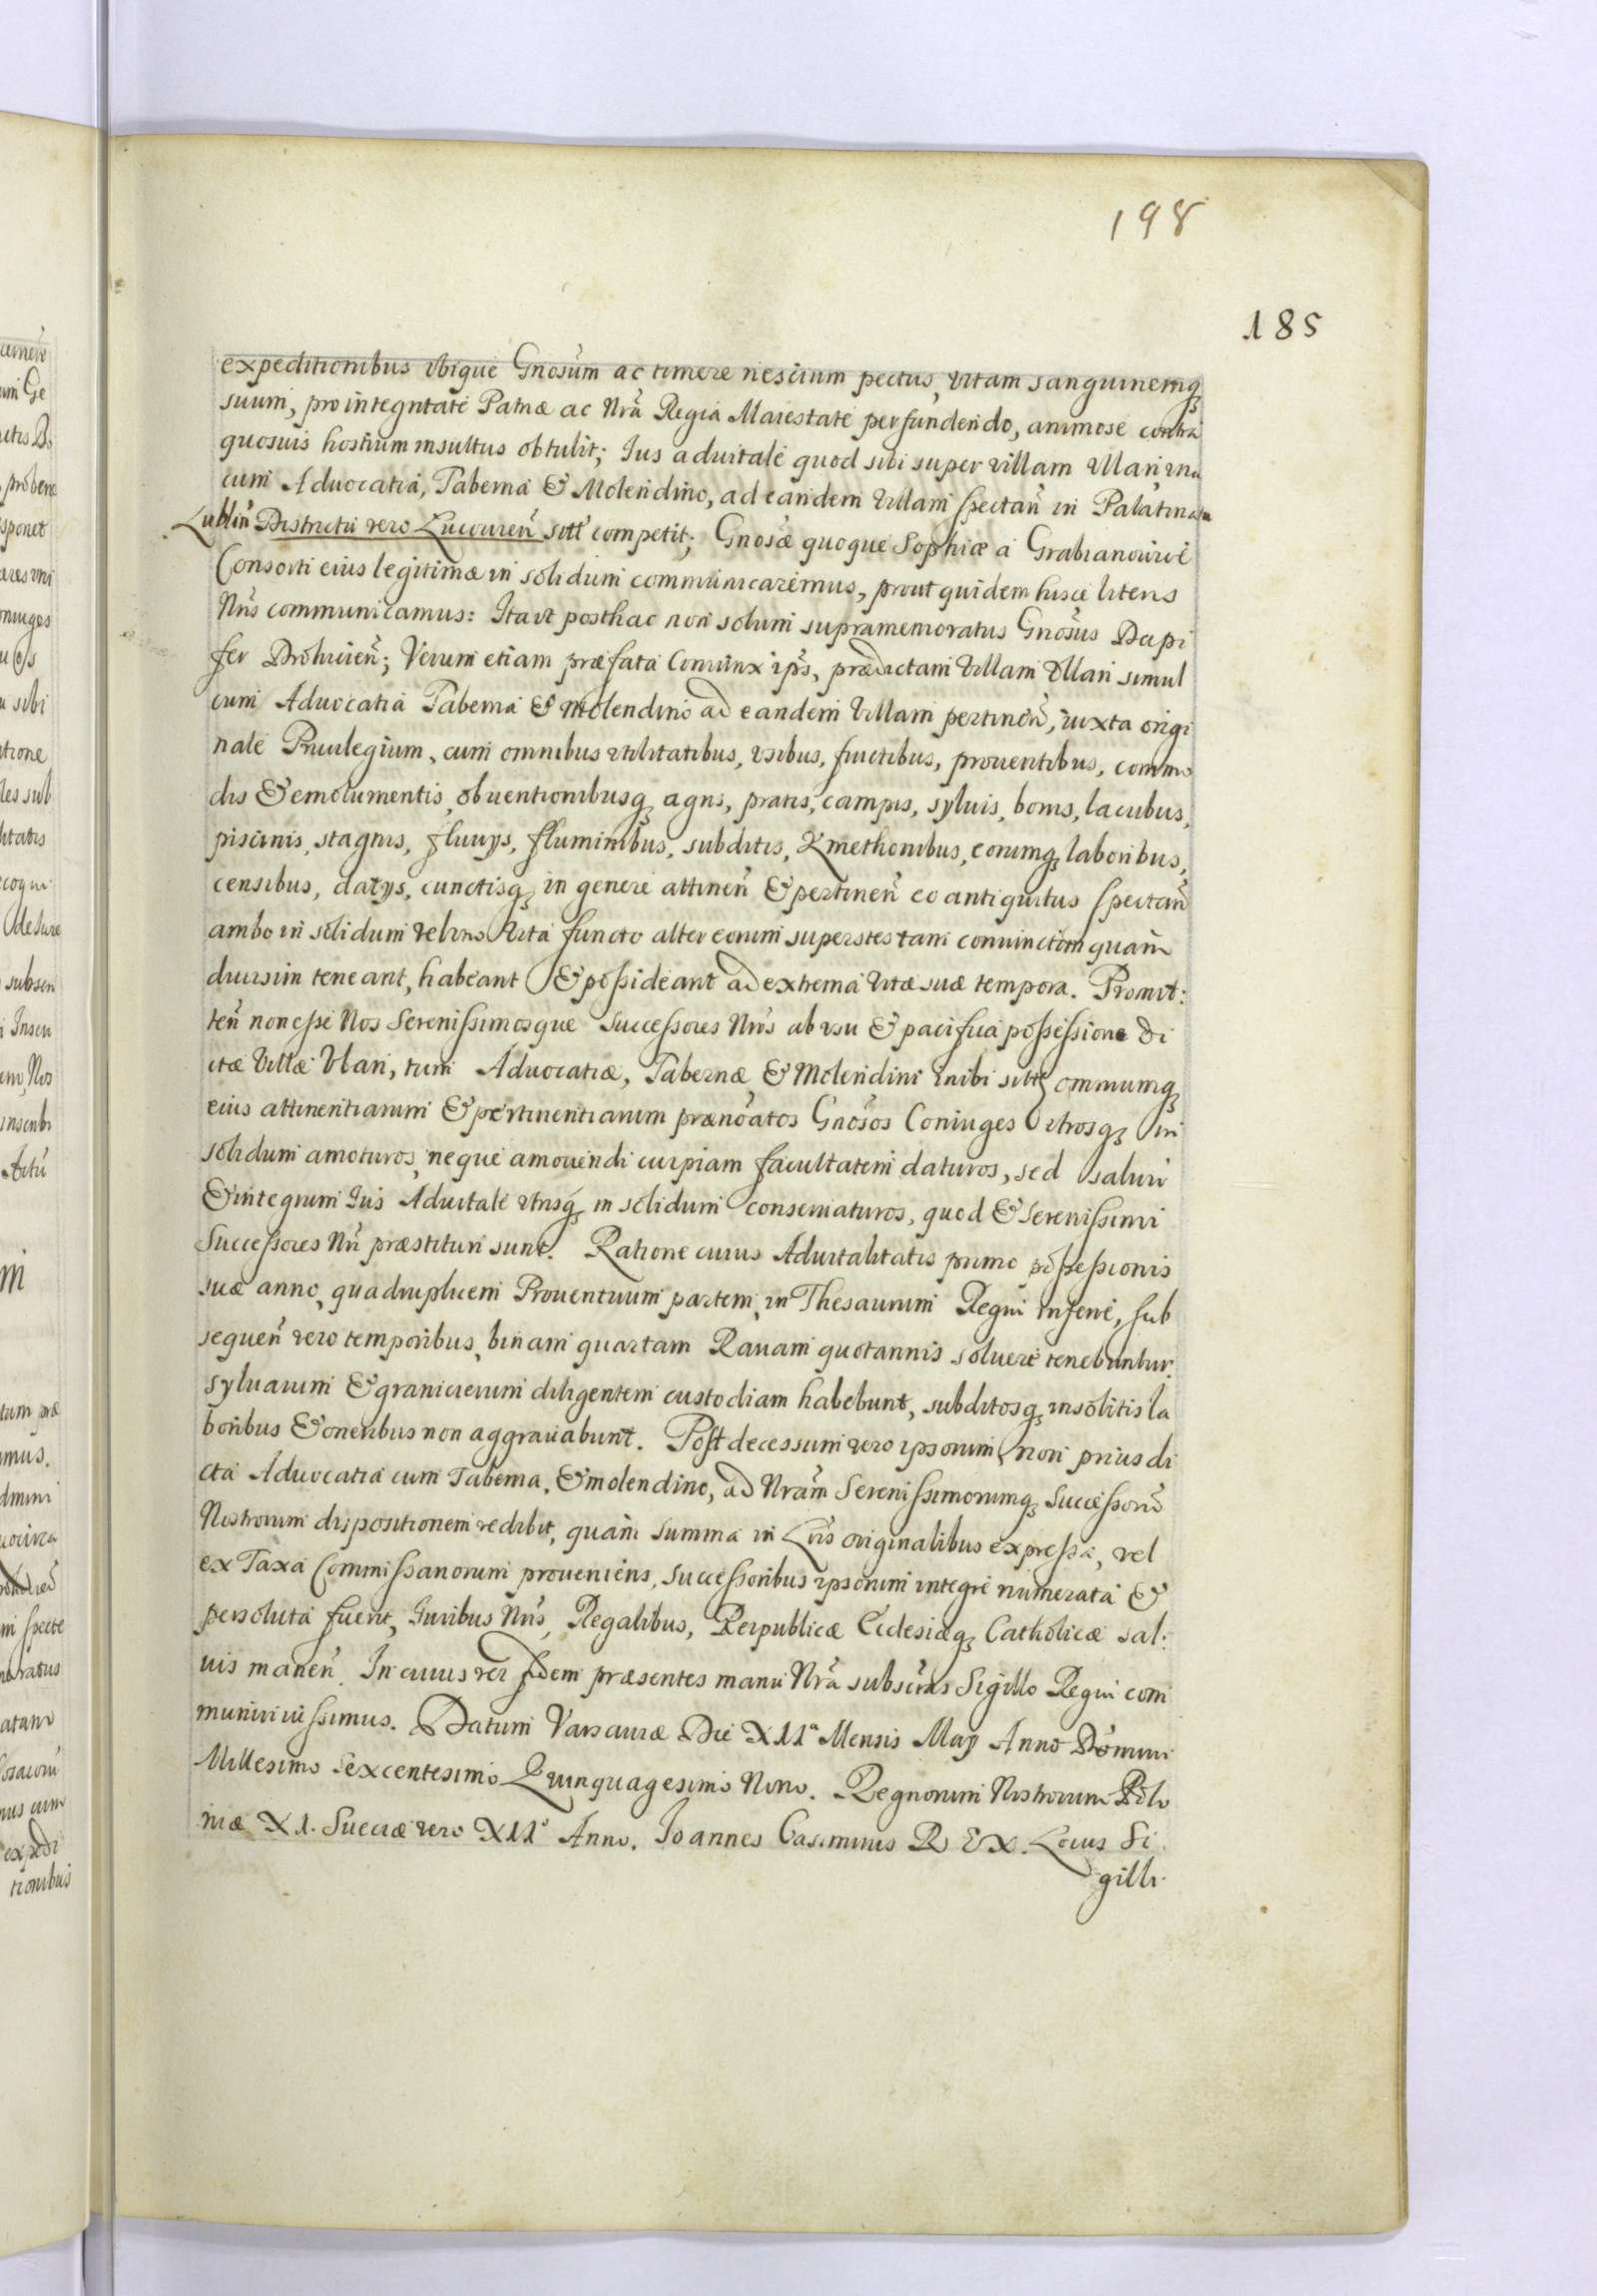 198
185
expeditionibus vbique Gnosum ac timere nescium pectus, vitam sanguinemq̨
suum, pro integritate Patriæ ac Nrã Regia Maiestate perfundendo, animose contra
quosuis hostium insultus obtulit; Ius aduitale quod sibi super villam Vlan, vna
cum Aduocatia, Taberna & Molendino, ad eandem Villam spectan̄ in Palatinatu
Lublin̄ Districtu vero Lucouien̄ sitt competit; Gnosæ quoque Sophiæ a Grabianowice
Consorti eius legitimæ in solidum communicaremus, prout quidem hisce literis
Nrĩs communicamus: Ita vt posthac non solum supramemoratus Gnosus Dapi
fer Drohicien̄; Verum etiam præfata Coniunx ip̃s, prædictam Villam Vlan simul
cum Aduocatia Taberna & Molendino ad eandem Villam pertinen̄, iuxta origi
nale Priuilegium, cum omnibus vtilitatibus, vsibus, fructibus, prouentibus, commo
dis & emolumentis, obuentionibusq̨ agris, pratis, campis, syluis, boris, lacubus,
piscinis, stagnis, fluuys, fluminibus, subditis, Kmethonibus, eorumq̨ laboribus,
censibus, datys, cunctisq̨ in genere attinen̄ & pertinen̄ eo antiquitus spectan̄
ambo in solidum vel vno vita functo alter eorum superstes tam coniunctim quam
diuisim teneant, habeant & possideant ad extrema vitæ suæ tempora. Promit:
ten̄ non esse Nos Serenissimosque Successores Nrõs ab vsu & pacifica possessione di
ctæ Villæ Vlan, tum Aduocatiæ, Tabernæ & Molendini inibi sitt omniumq̨
eius attinentiarum & pertinentiarum prænoatos Gnosos Coniuges vtrosq̨ in
solidum amoturos, neque amouendi cuipiam facultatem daturos, sed saluũ
& integrum Ius Aduitale vtrisq̨ in solidum conseruaturos, quod & Serenissimi
Successores Nrĩ præstituri sunt. Ratione cuius Aduitalitatis primo possessionis
suæ anno, quadruplicem Prouentuum partem, in Thesaurum Regni inferre, sub
sequen̄ vero temporibus, binam quartam Rauam quotannis soluere tenebuntur.
Syluarum & granicierum diligentem custodiam habebunt, subditosq̨ insolitis la
boribus & oneribus non aggrauabunt. Post decessum vero ipsorum, non prius di
cta Aduocatia cum Taberna. & molendino, ad Nrãm Serenissimorumq̨ Successorũ
Nostrorum dispositionem redibit, quam summa in Lrĩs originalibus expressa, vel
ex Taxa Commissariorum proueniens, Successoribus ipsorum integre numerata &
persoluta fuerit, Iuribus Nrĩs, Regalibus, Reipublicæ Ecclesiæq̨ Catholicæ sal:
uis manen̄. In cuius rei fidem præsentes manu Nrã subscrãs Sigillo Regni com
muniri iussimus. Datum Varsauiæ Die XIIª Mensis May Anno Domini
Millesimo Sexcentesimo Quinquagesimo Nono. Regnorum Nostrorum Polo
niæ XI. Sueciæ vero XIIº Anno. Ioannes Casimirus REX. Locus Si
gilli.